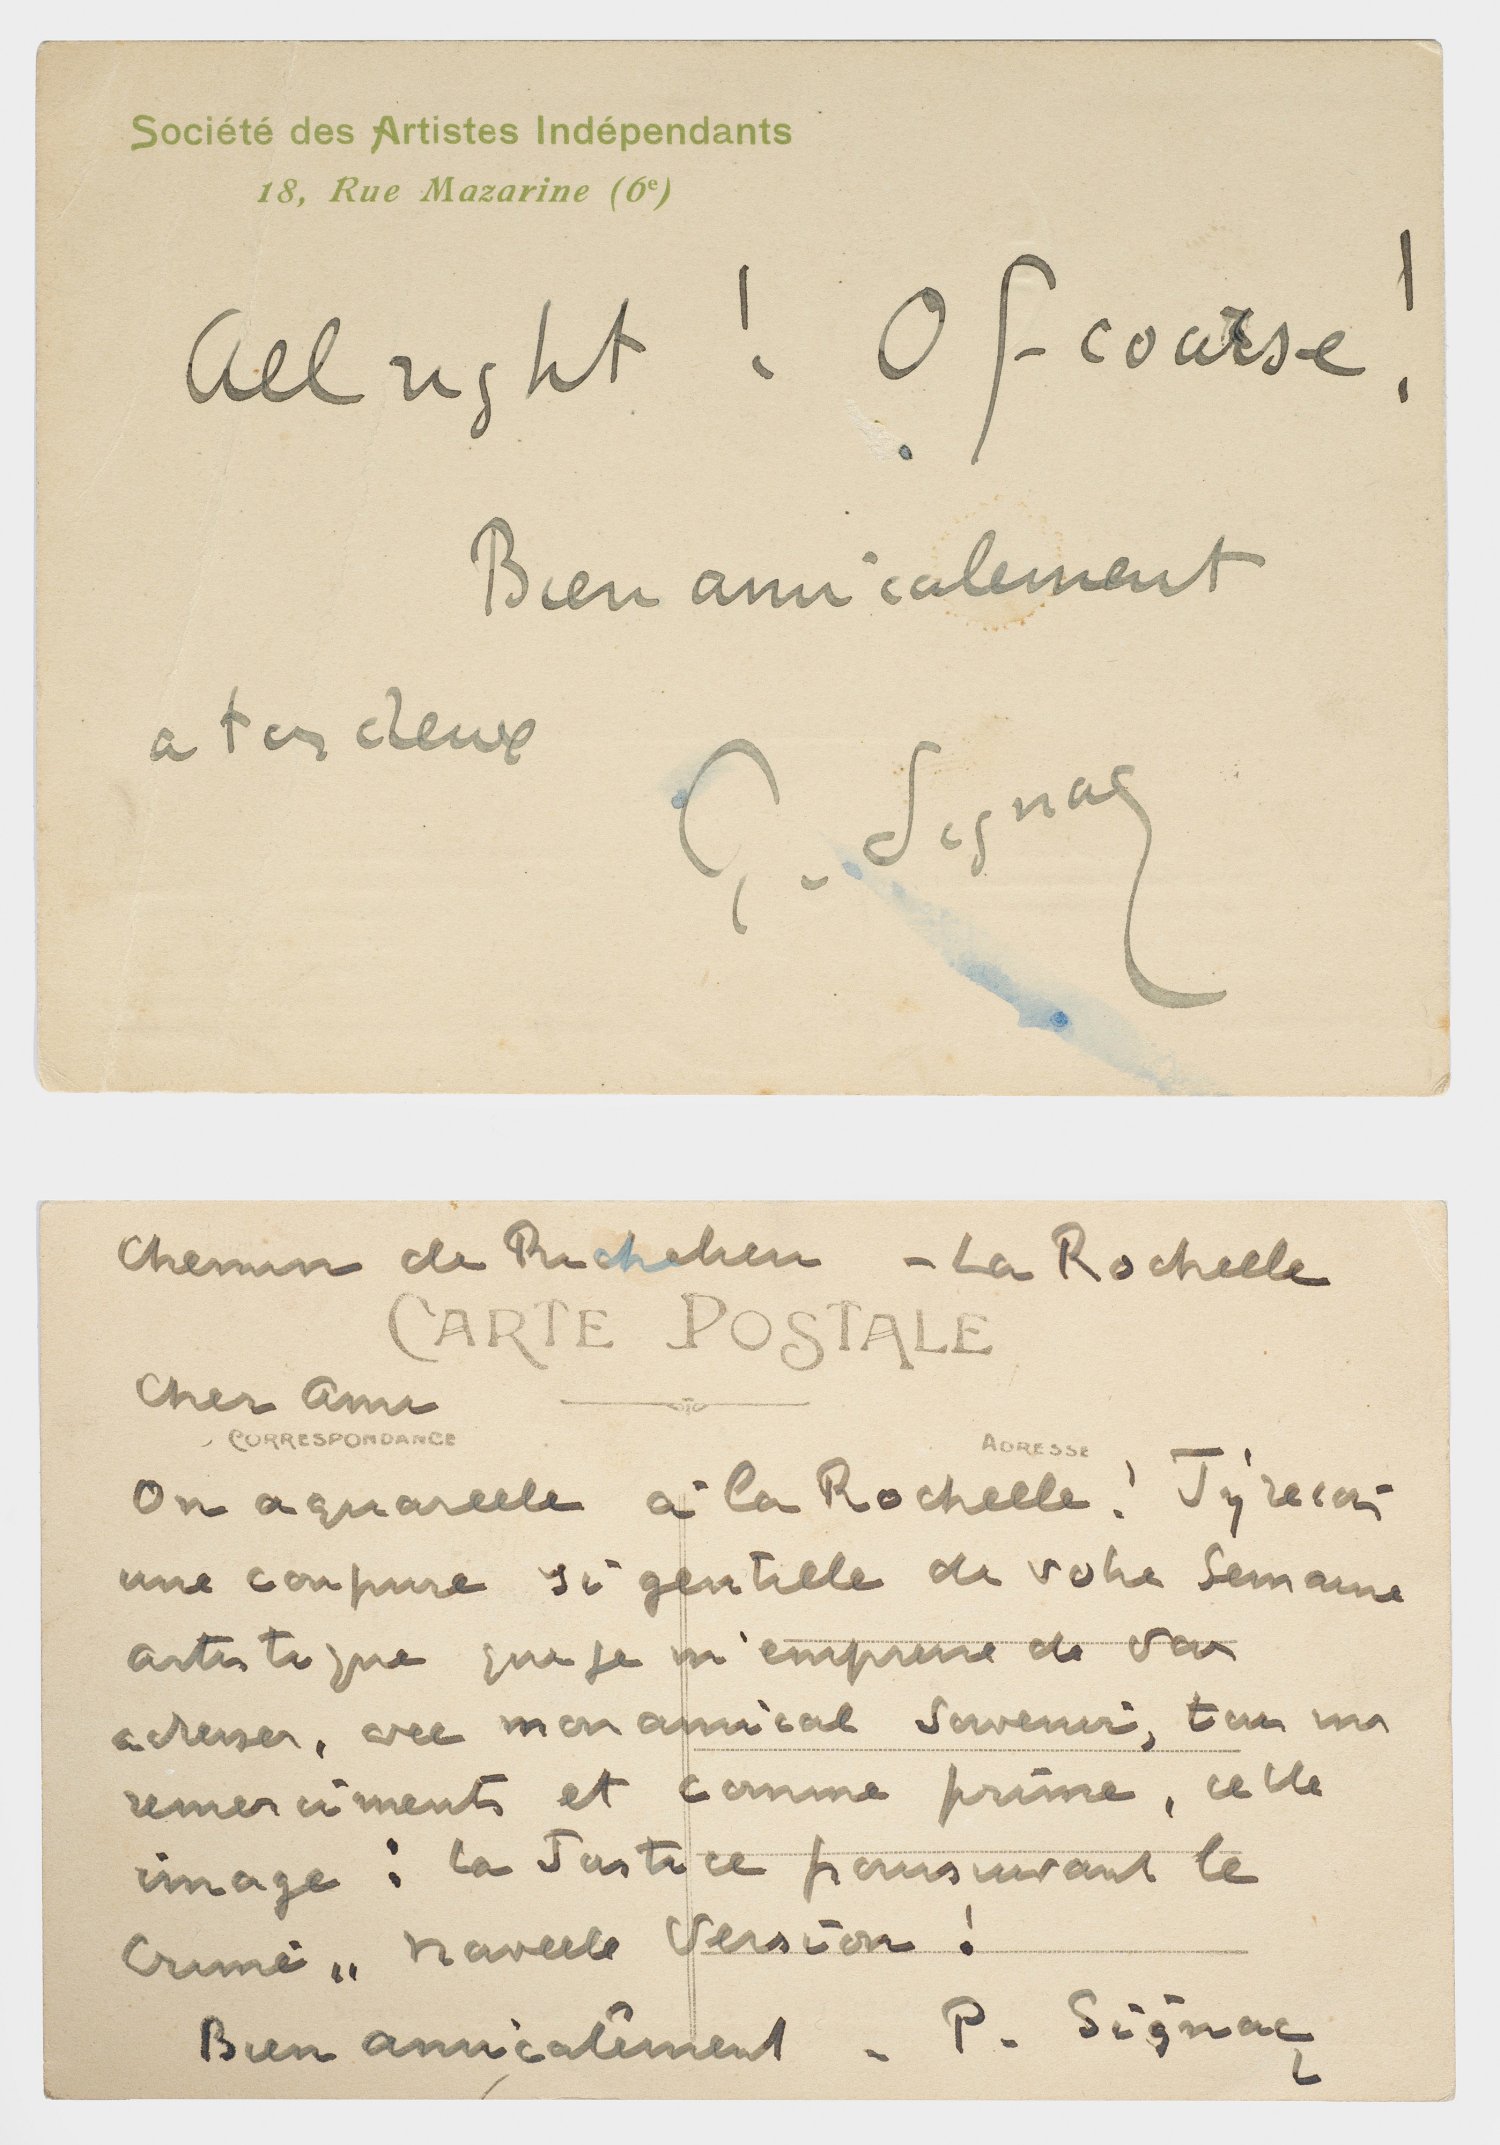 Société des Artistes Indépendants
18, Rue Mazarine (6e)
All right ! Of course !
Bien amicalement
a tous deux
P. Signac
Chemin de Richelieu - La Rochelle
CARTE POSTALE
Cher Ami
CORRESPONDANCE
ADRESSE
On aquarelle à La Rochelle ! J'y reçois
une coupure si gentille de votre Semaine
artistique que je m'empresse de vous
adresser, avec mon amical souvenir, tous mes
remerciments et comme prime, cette
image : la Justice poursuivant le
Crime „ nouvelle Version !
Bien amicalement - P. Signac